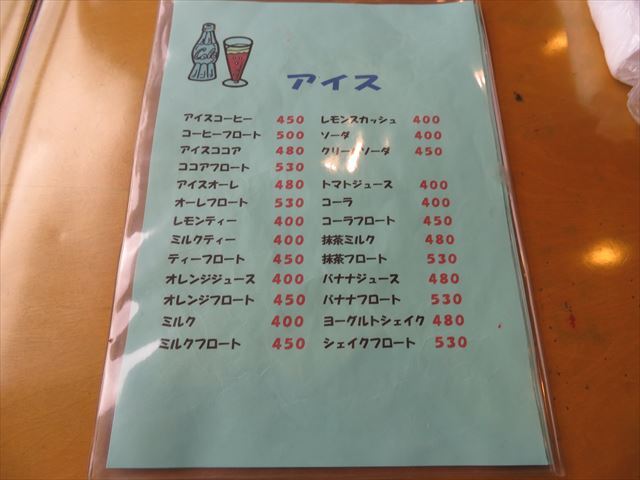 Cola
アイス
アイスコーヒー 450 レモンスカッシュ 400
コーヒーフロート 500 ソーダ 400
アイスココア 480 クリームソーダ 450
ココアフロート 530
アイスオーレ 480 トマトジュース 400
オーレフロート 530 コーラ 400
レモンティー 400 コーラフロート 450
ミルクティー 400 抹茶ミルク 480
ティーフロート 450 抹茶フロート 530
オレンジジュース 400 バナナジュース 480
オレンジフロート 450 バナナフロート 530
ミルク 400 ヨーグルトシェイク 480
ミルクフロート 450 シェイクフロート 530